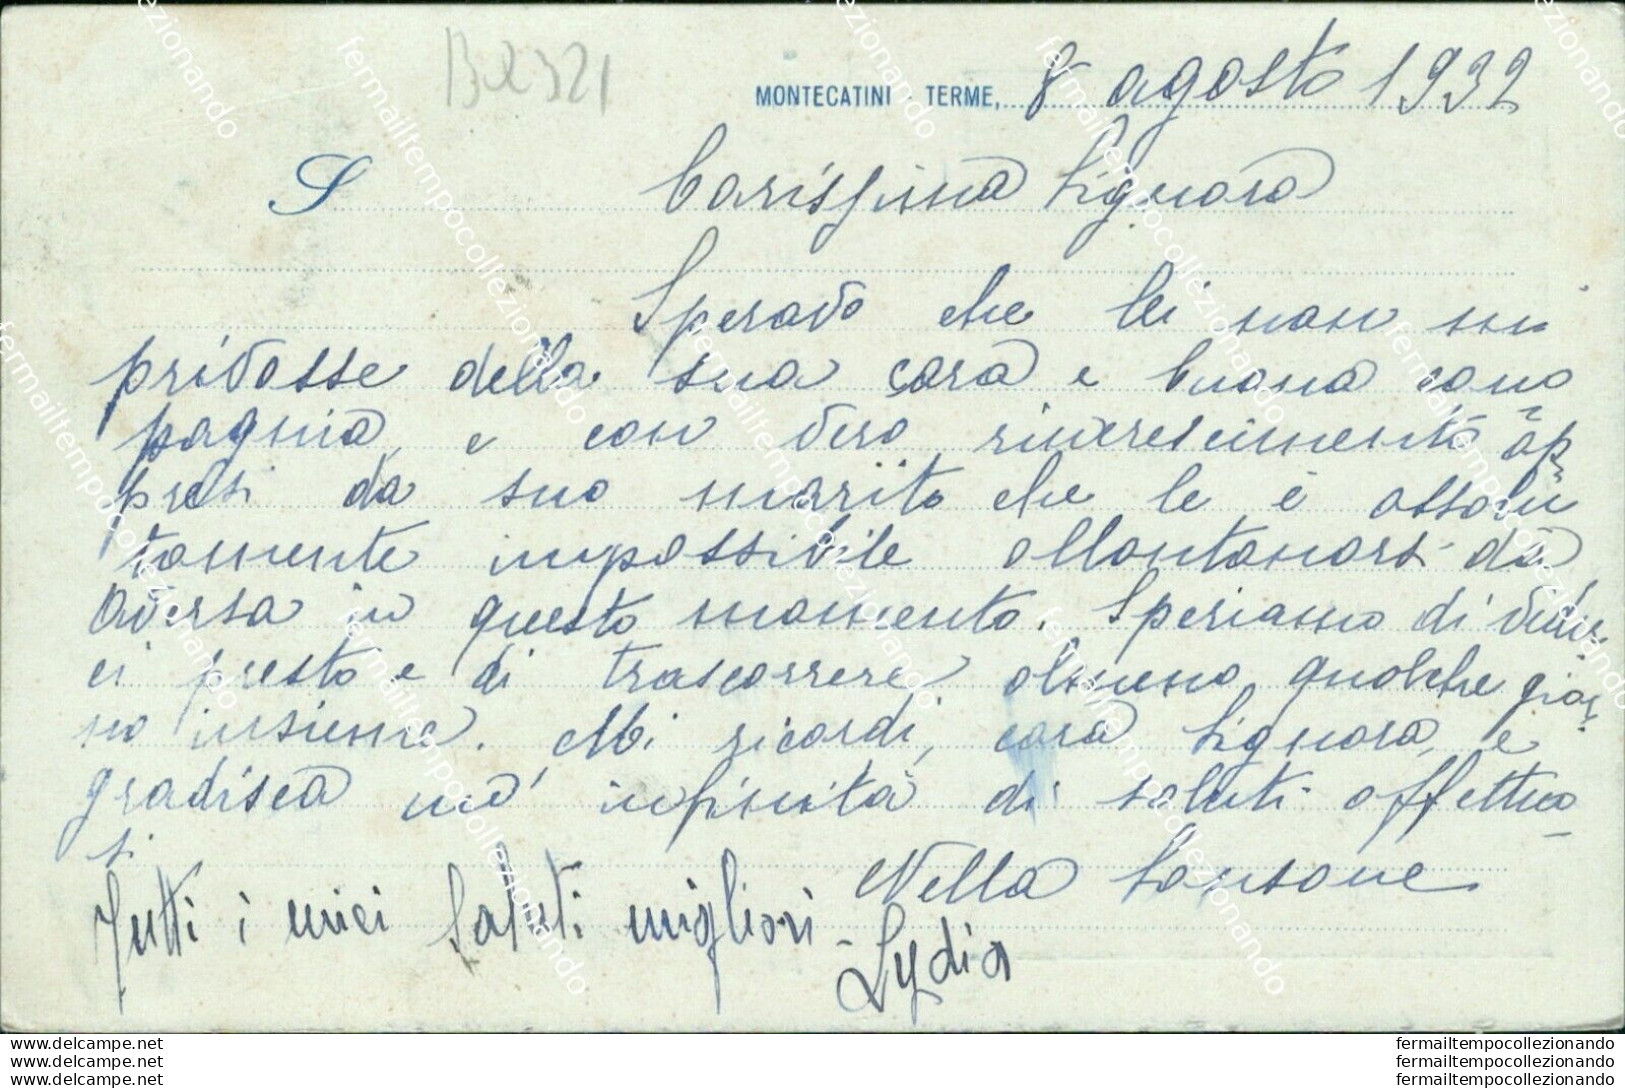 Bq321
MONTECATINI - TERME, 8 agosto 1932
S Carissima Signora
Speravo che lei non mi
privasse della sua cara e buona com
pagnia, e con vero rincrescimento ap
presi da suo marito che le è assolu
tamente impossibile allontanarsi da
Aversa in questo momento. Speriamo di veder
ci presto e di trascorrere almeno qualche gior
no insieme. Mi ricordi, cara Signora, e
gradisca un' infinità di saluti affettuo
si
Nella Sansone
Tutti i miei saluti migliori -
Lydia
www.delcampe.net
www.delcampe.net
www.delcampe.net
fermailtempocollezionando
fermailtempocollezionando
fermailtempocollezionando